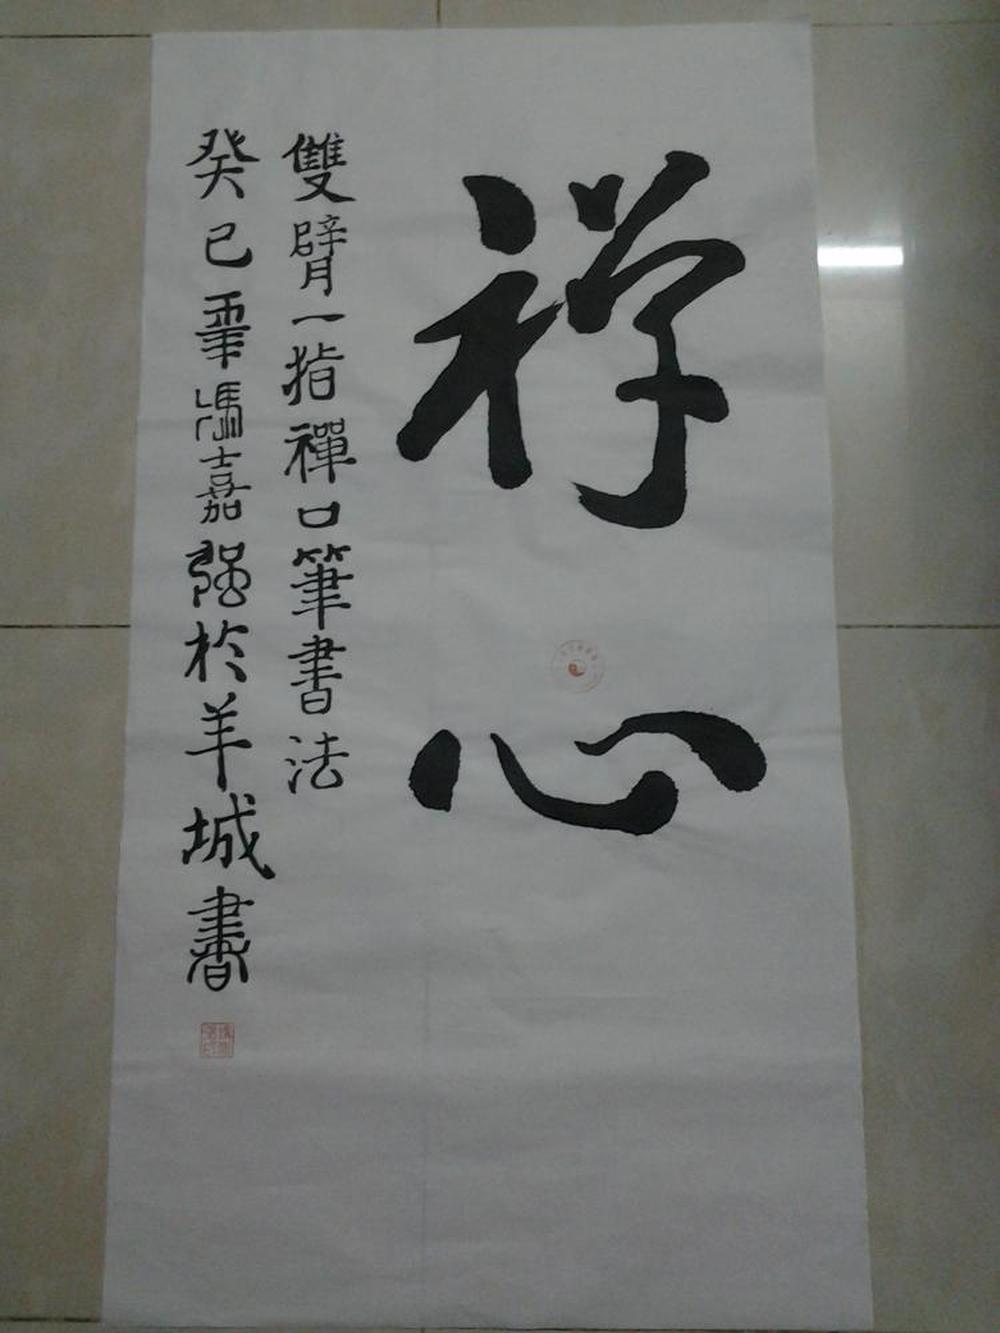 禅心
雙臂一指禪口筆書法
癸巳年馮嘉强於羊城書